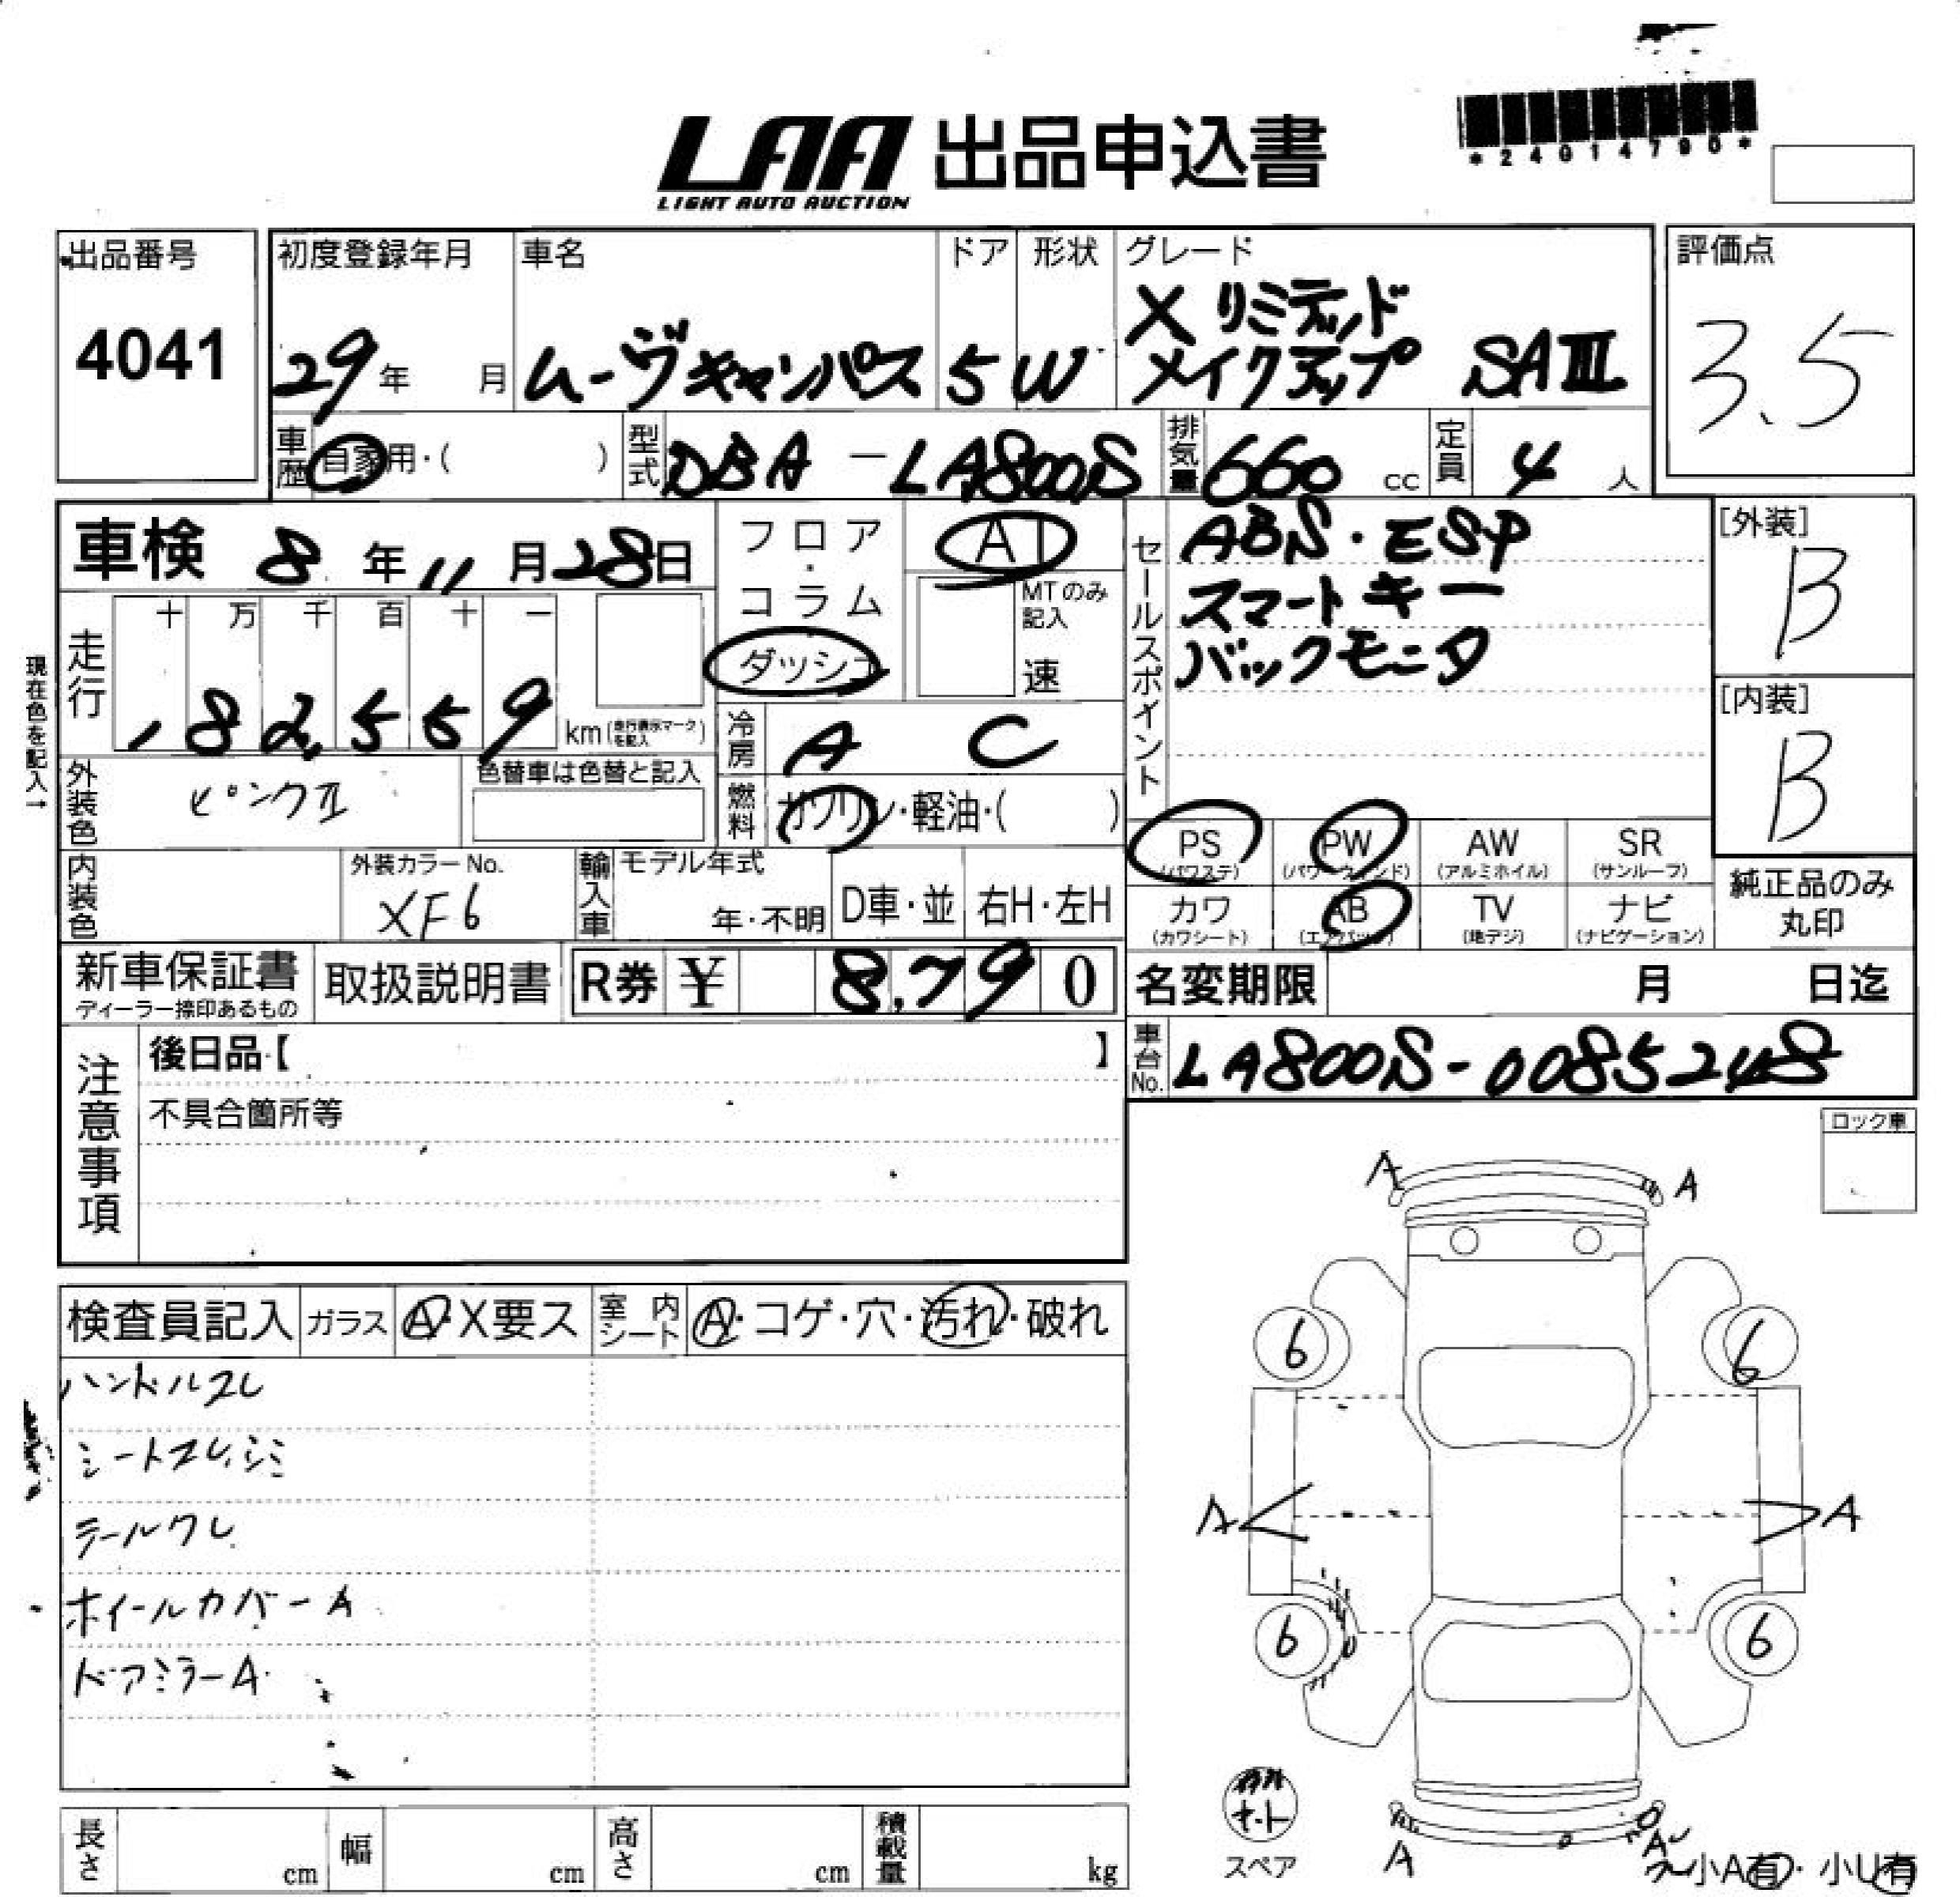 *24014790*
LAA 出品申込書
LIGHT AUTO AUCTION
出品番号
4041
初度登録年月
29年 月
車名
ムーヴキャンバス
ドア
5
形状
W
グレード
X リミテッド
メイクアップ SAIII
評価点
3.5
車歴 自家用・( )
型式 DBA-LA800S
排気量 660 cc
定員 4 人
車検 8年11月28日
フロア・コラム
ダッシュ
AT
MTのみ記入
速
セールスポイント
ABS・ESP
スマートキー
バックモニタ
[外装]
B
[内装]
B
現在色を記入→
走行
十 万 千 百 十 一
82,559 km(走行表示マークを記入)
冷房 A C
燃料 ガソリン・軽油・( )
外装色 ピンクII
色替車は色替と記入
内装色
外装カラーNo.
XF6
輸入車 モデル年式
年・不明
D車・並
右H・左H
PS
(パワステ)
PW
(パワーウィンド)
AW
(アルミホイル)
SR
(サンルーフ)
カワ
(カワシート)
AB
(エアバッグ)
TV
(地デジ)
ナビ
(ナビゲーション)
純正品のみ
丸印
新車保証書
ディーラー捺印あるもの
取扱説明書
R券 ¥ 8,790
名変期限 月 日迄
車台No. LA800S-0085248
注意事項
後日品【 】
不具合箇所等
ロック車
検査員記入
ガラス A・X要ス
室内シート A・コゲ・穴・汚れ・破れ
ハンドルスレ
シートスレ、シミ
テールワレ
ホイールカバーA
ドアミラーA
A
A
6
6
A
A
6
6
スペア
A
A
小A有・小U有
長さ cm
幅 cm
高さ cm
積載量 kg